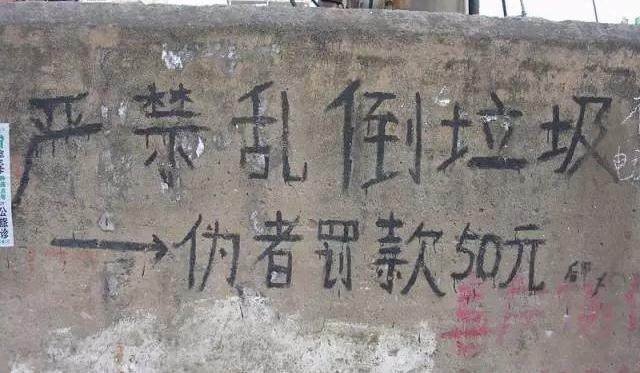 严禁乱倒垃圾
→伪者罚款50元